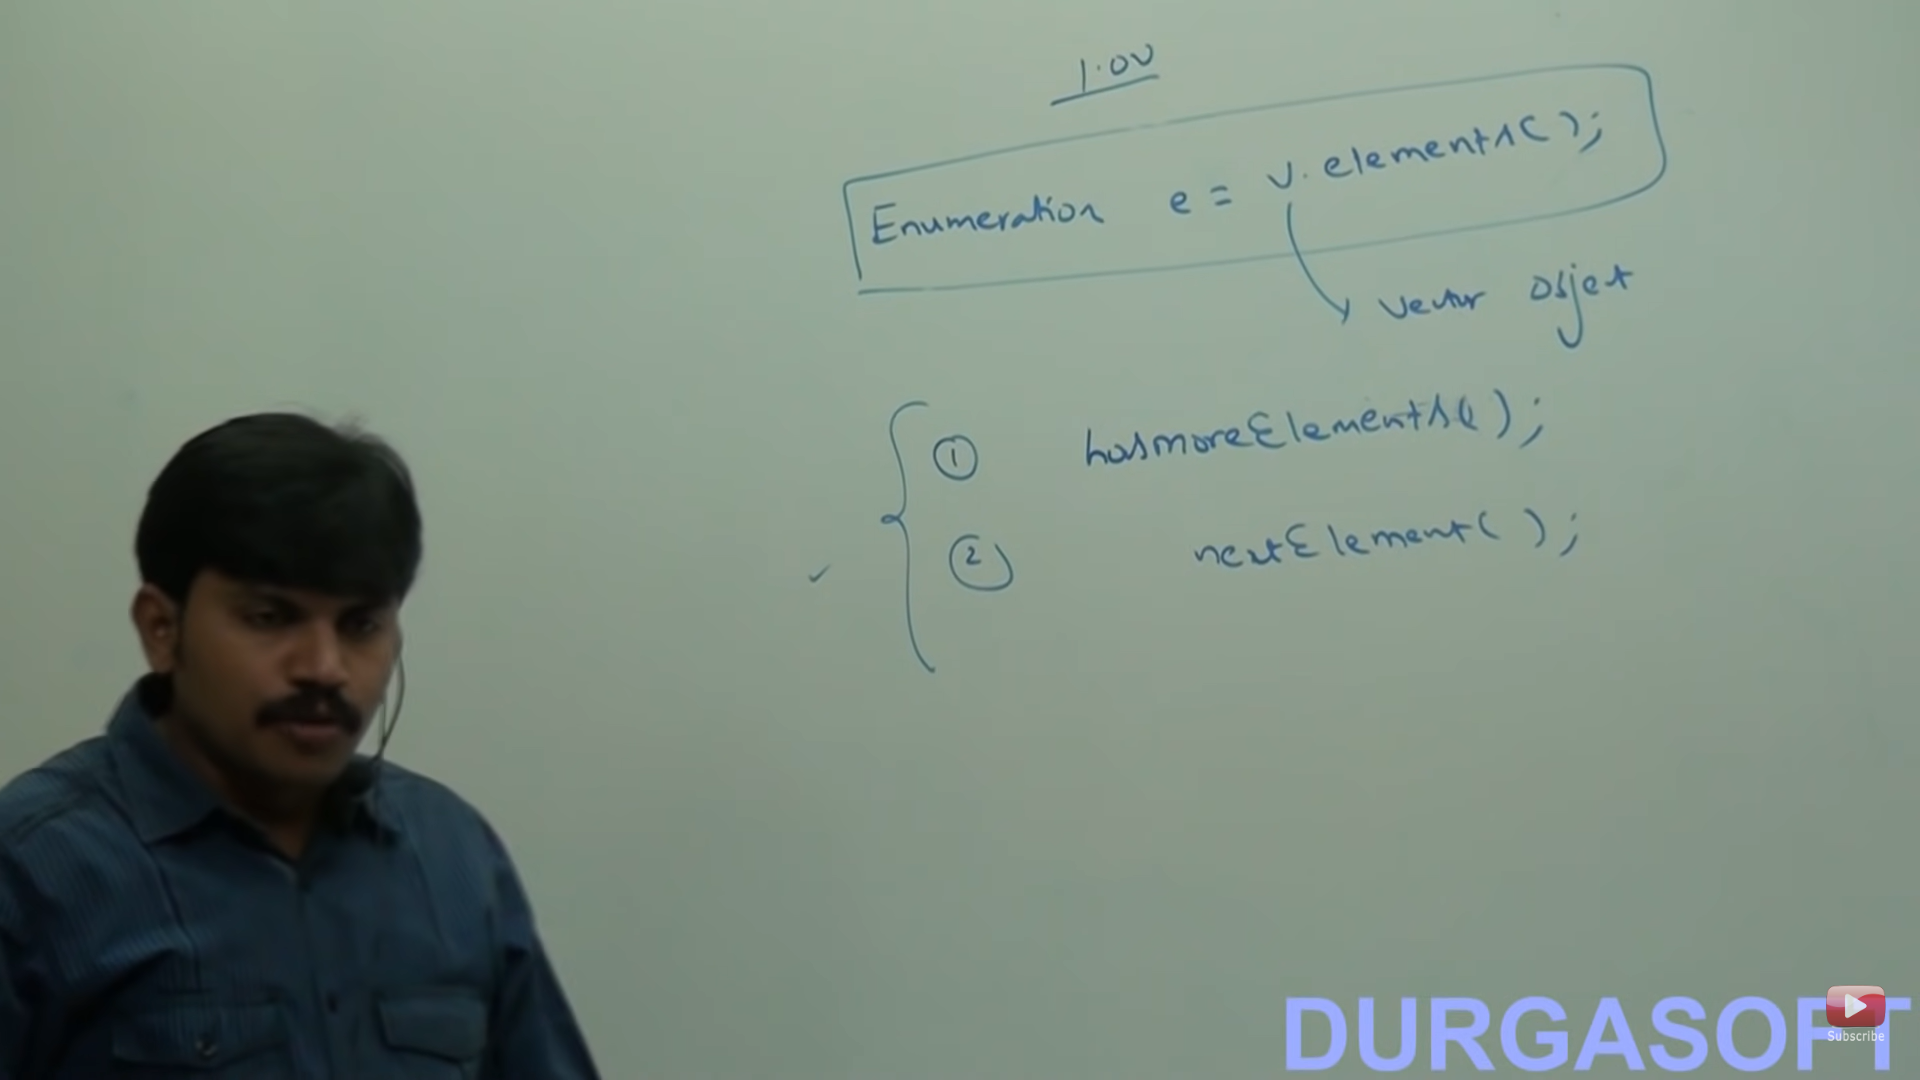 1.0V
Enumeration e = v.elements();
vector object
1 hasmoreElements();
2 nextElement();
DURGASOFT
Subscribe